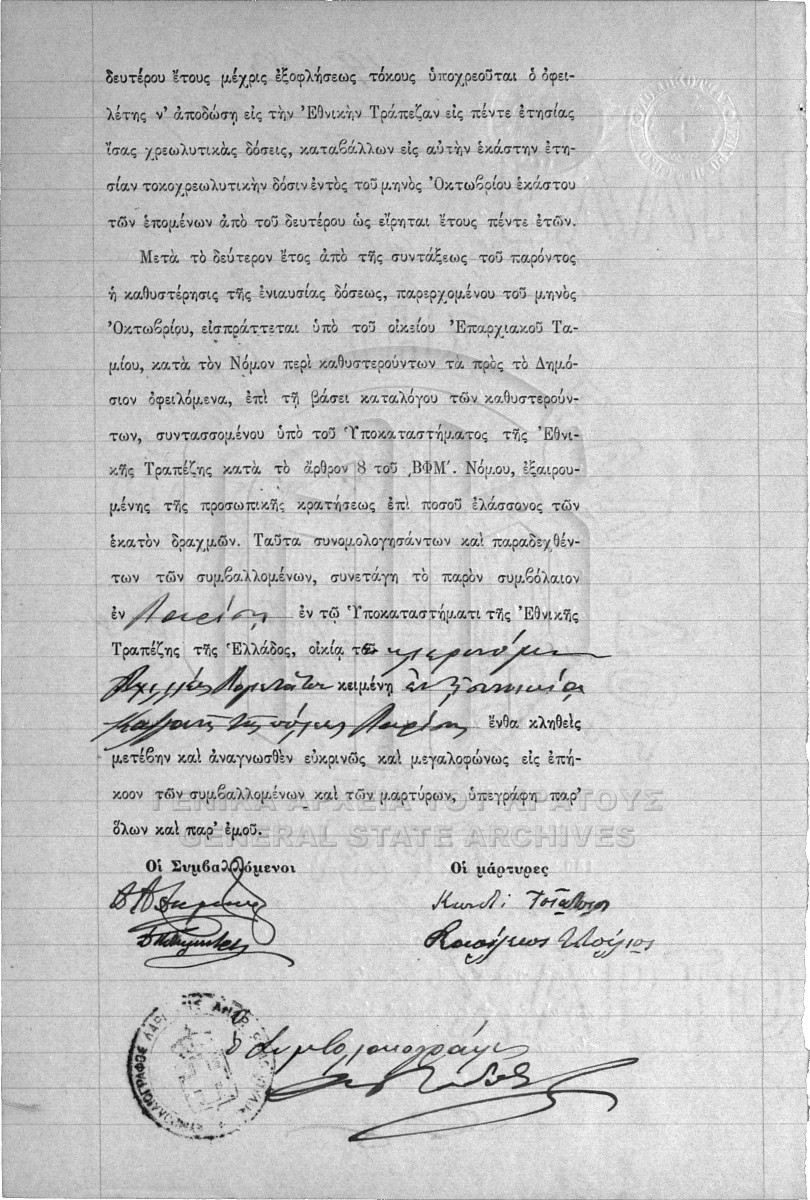 δευτέρου ἔτους μέχρις ἐξοφλήσεως τόκους ὑποχρεοῦται ὁ ὀφει-
λέτης ν' ἀποδώσῃ εἰς τὴν Ἐθνικὴν Τράπεζαν εἰς πέντε ἐτησίας
ἴσας χρεωλυτικὰς δόσεις, καταβάλλων εἰς αὐτὴν ἑκάστην ἐτη-
σίαν τοκοχρεωλυτικὴν δόσιν ἐντὸς τοῦ μηνὸς Ὀκτωβρίου ἑκάστου
τῶν ἑπομένων ἀπὸ τοῦ δευτέρου ὡς εἴρηται ἔτους πέντε ἐτῶν.
Μετὰ τὸ δεύτερον ἔτος ἀπὸ τῆς συντάξεως τοῦ παρόντος
ἡ καθυστέρησις τῆς ἐνιαυσίας δόσεως, παρερχομένου τοῦ μηνὸς
Ὀκτωβρίου, εἰσπράττεται ὑπὸ τοῦ οἰκείου Ἐπαρχιακοῦ Τα-
μίου, κατὰ τὸν Νόμον περὶ καθυστερούντων τὰ πρὸς τὸ Δημό-
σιον ὀφειλόμενα, ἐπὶ τῇ βάσει καταλόγου τῶν καθυστερούν-
των, συντασσομένου ὑπὸ τοῦ Ὑποκαταστήματος τῆς Ἐθνι-
κῆς Τραπέζης κατὰ τὸ ἄρθρον 8 τοῦ ͵ΒΦΜʹ. Νόμου, ἐξαιρου-
μένης τῆς προσωπικῆς κρατήσεως ἐπὶ ποσοῦ ἐλάσσονος τῶν
ἑκατὸν δραχμῶν. Ταῦτα συνομολογησάντων καὶ παραδεχθέν-
των τῶν συμβαλλομένων, συνετάγη τὸ παρὸν συμβόλαιον
ἐν Λαρίσῃ ἐν τῷ Ὑποκαταστήματι τῆς Ἐθνικῆς
Τραπέζης τῆς Ἑλλάδος, οἰκίᾳ
κειμένῃ
τῆς πόλεως Λαρίσης ἔνθα κληθεὶς
μετέβην καὶ ἀναγνωσθὲν εὐκρινῶς καὶ μεγαλοφώνως εἰς ἐπή-
κοον τῶν συμβαλλομένων καὶ τῶν μαρτύρων, ὑπεγράφη παρ'
ὅλων καὶ παρ' ἐμοῦ.
ΓΕΝΙΚΑ ΑΡΧΕΙΑ ΤΟΥ ΚΡΑΤΟΥΣ
GENERAL STATE ARCHIVES
Οἱ Συμβαλλόμενοι Οἱ μάρτυρες
ὁ Συμβολαιογράφος